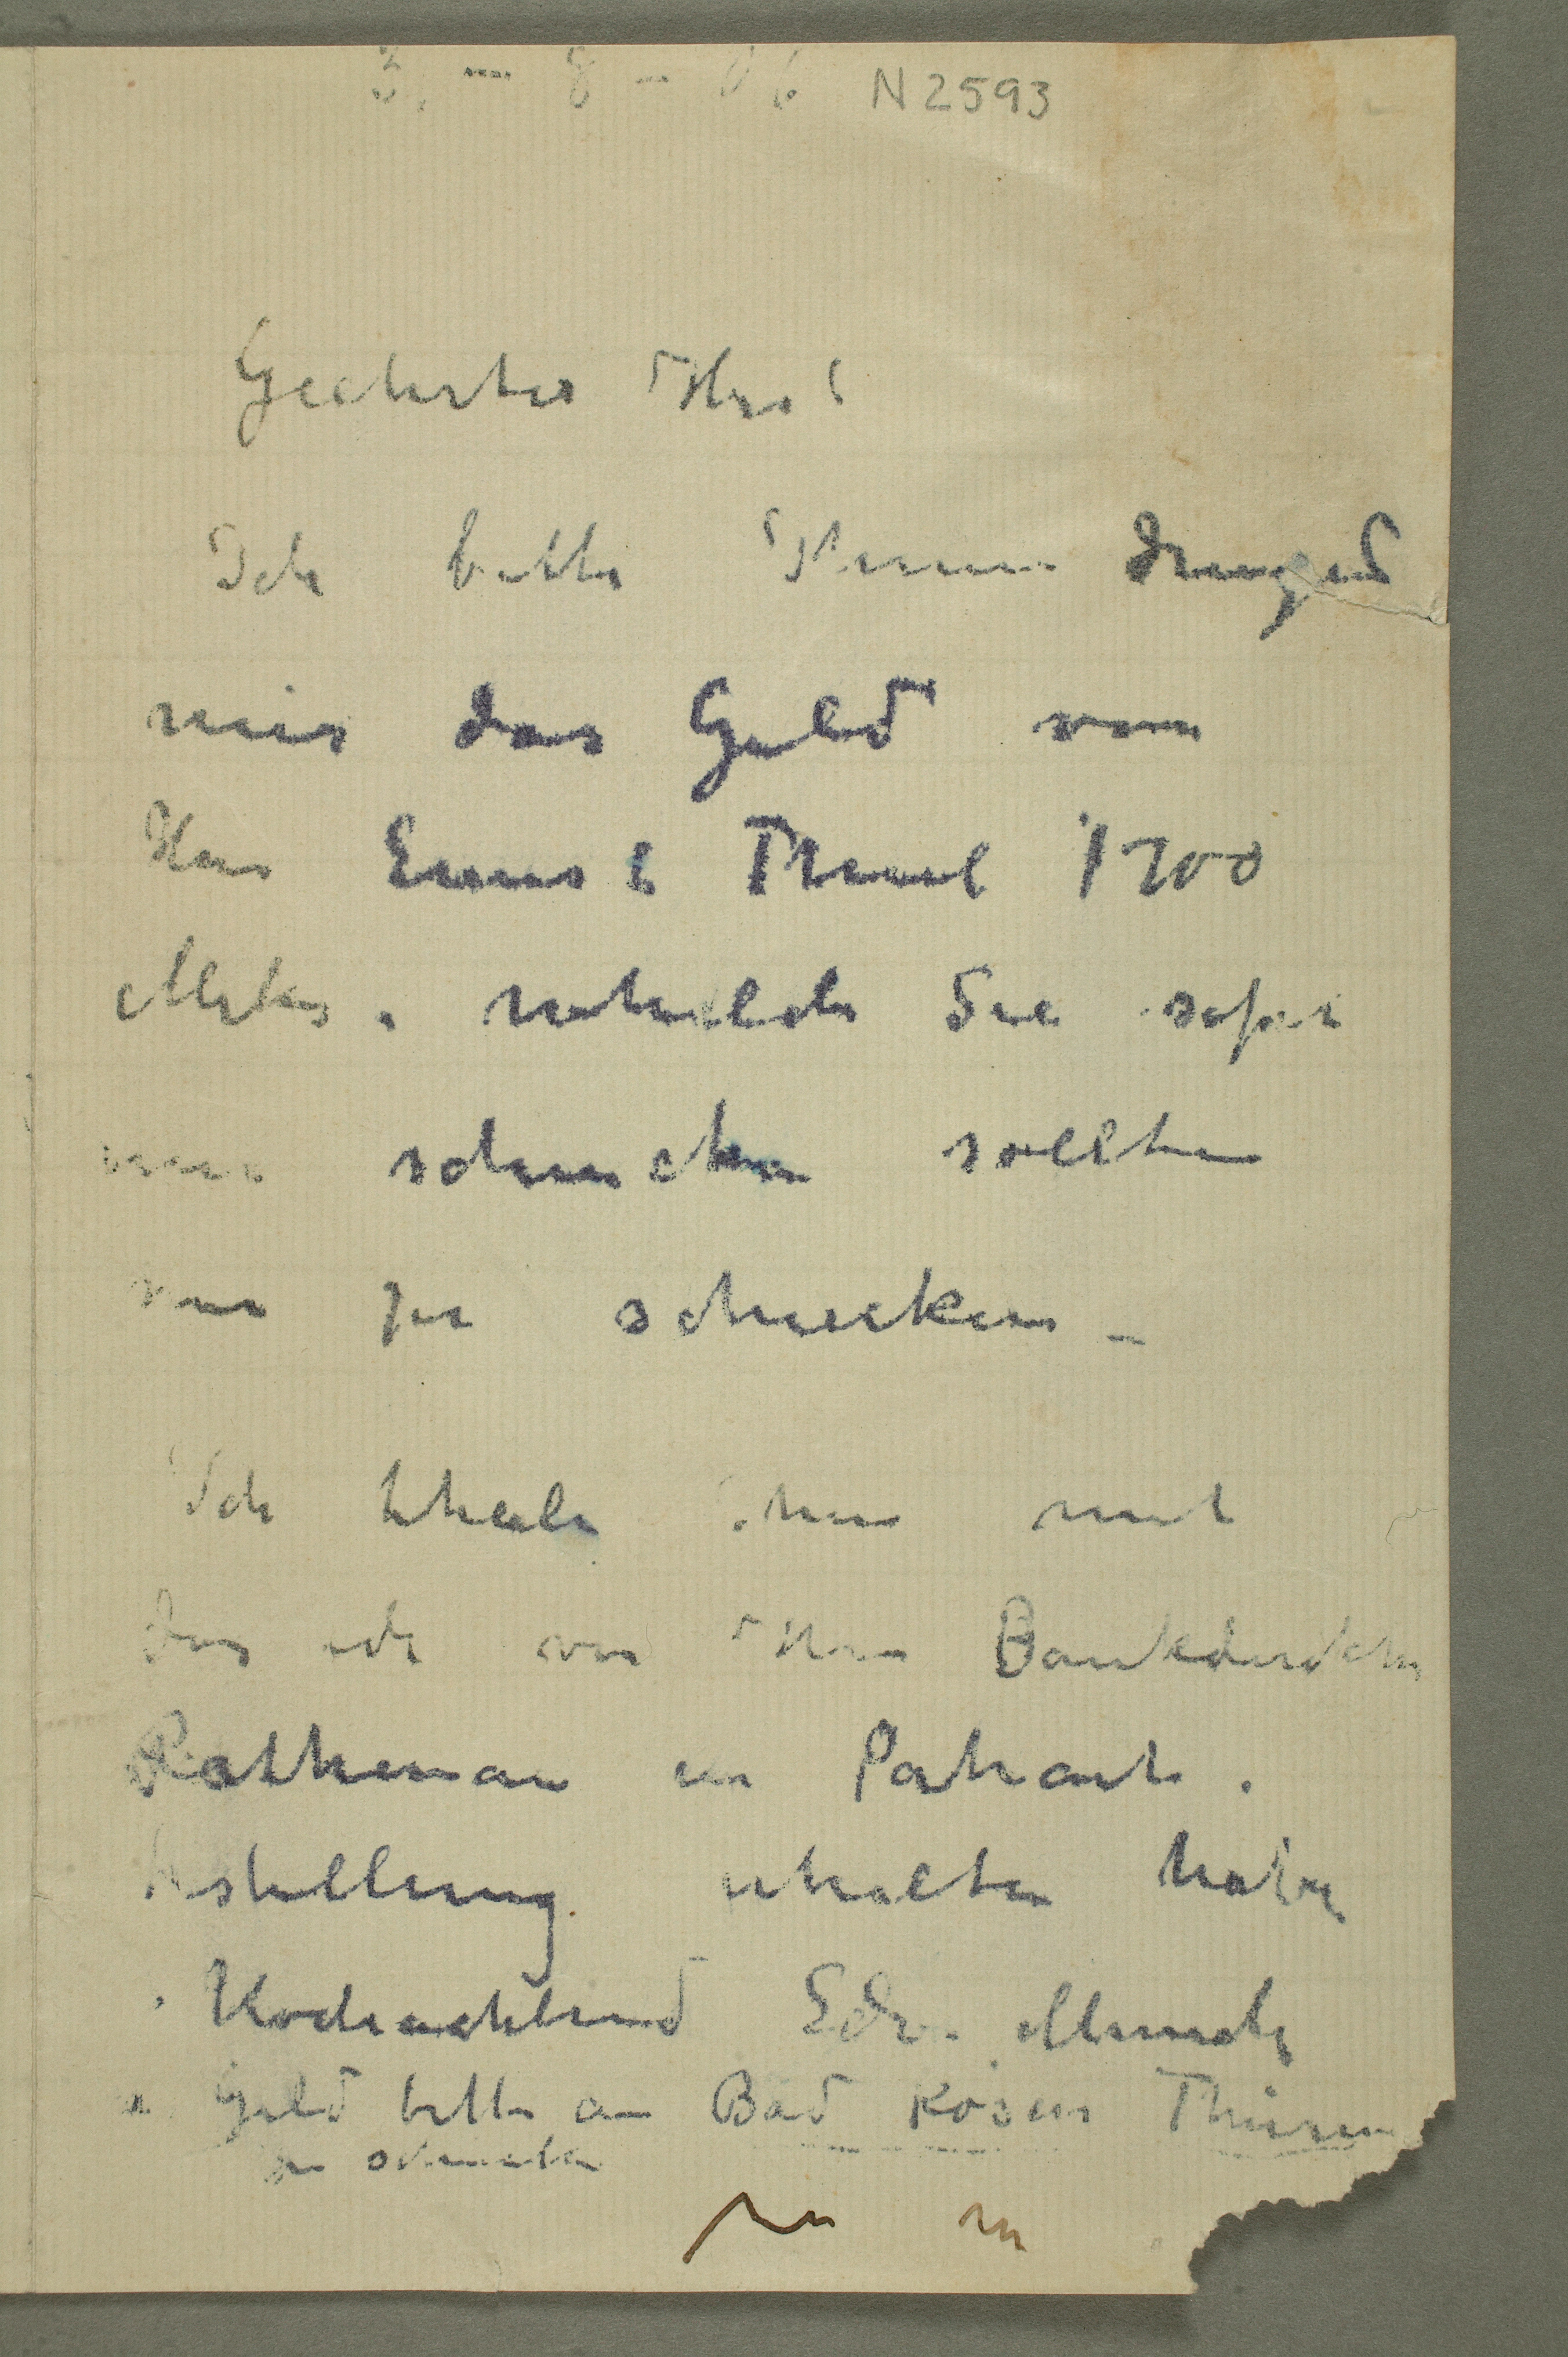 3. – 8 – 06 N 2593
Geehrter Herr!
Ich bitte Ihnen dringend
mir das Geld von
Herr Ernest Thiel 1700
Mrks. welche Sie sofort
mir schicken sollten
mir zu schicken –
Ich theile ihnen mit
das ich von Herrn Bankdirektor
Rathenau ein Portrait.
bestellung erhalten habe
Hochachtend Edv. Munch
Geld bitte an Bad Kösen Thüren
zu schicken